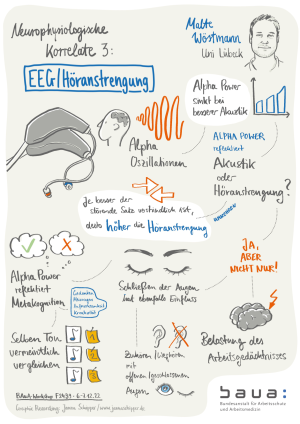 Neurophysiologische
Korrelate 3:
EEG/Höranstrengung
Malte
Wöstmann
Uni Lübeck
Alpha Power
sinkt bei
besserer Akustik
Alpha
Oszillationen
ALPHA POWER
reflektiert
Akustik
oder
Höranstrengung?
Je besser der
störende Satz verständlich ist,
desto höher die Höranstrengung
JA,
ABER
NICHT NUR!
Alpha Power
reflektiert
Metakognition
Gedanken,
Schließen der Augen
hat ebenfalls Einfluss
Selben Ton
vermeintlich
vergleichen
1
2
Zuhören
mit
offenen/geschlossenen
Augen
Belastung des
Arbeitsgedächtnisses
BAuA-Workshop F2439 · 6.-7.12.22
baua:
Bundesanstalt für Arbeitsschutz
und Arbeitsmedizin